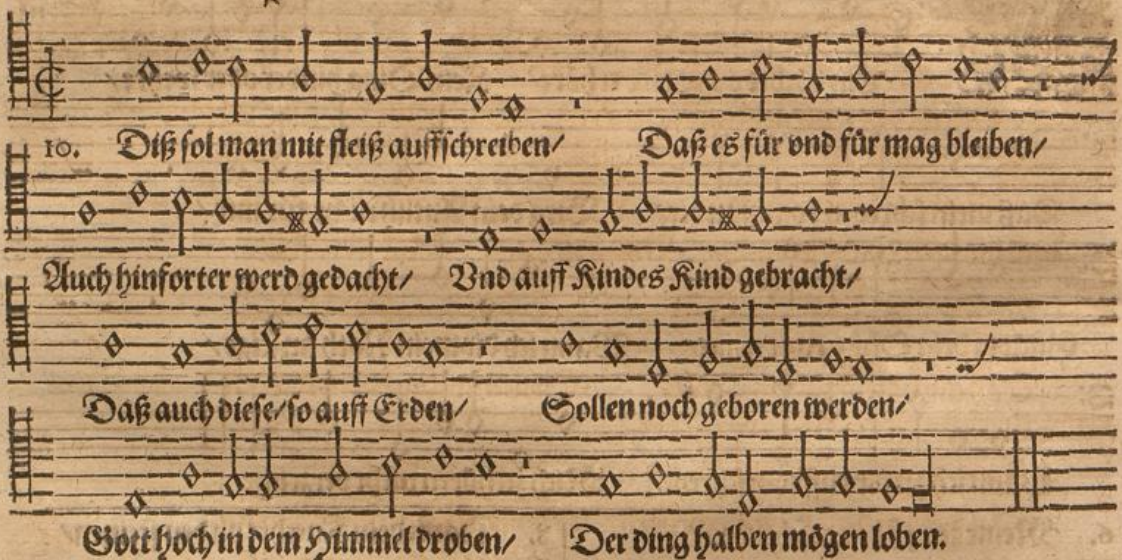 10. Diß sol man mit fleiß auffschreiben/ Daß es für vnd für mag bleiben/
Auch hinforter werd gedacht/ Vnd auff Kindes Kind gebracht/
Daß auch diese/ so auff Erden/ Sollen noch geboren werden/
Gott hoch in dem Himmel droben/ Der ding halben mögen loben.